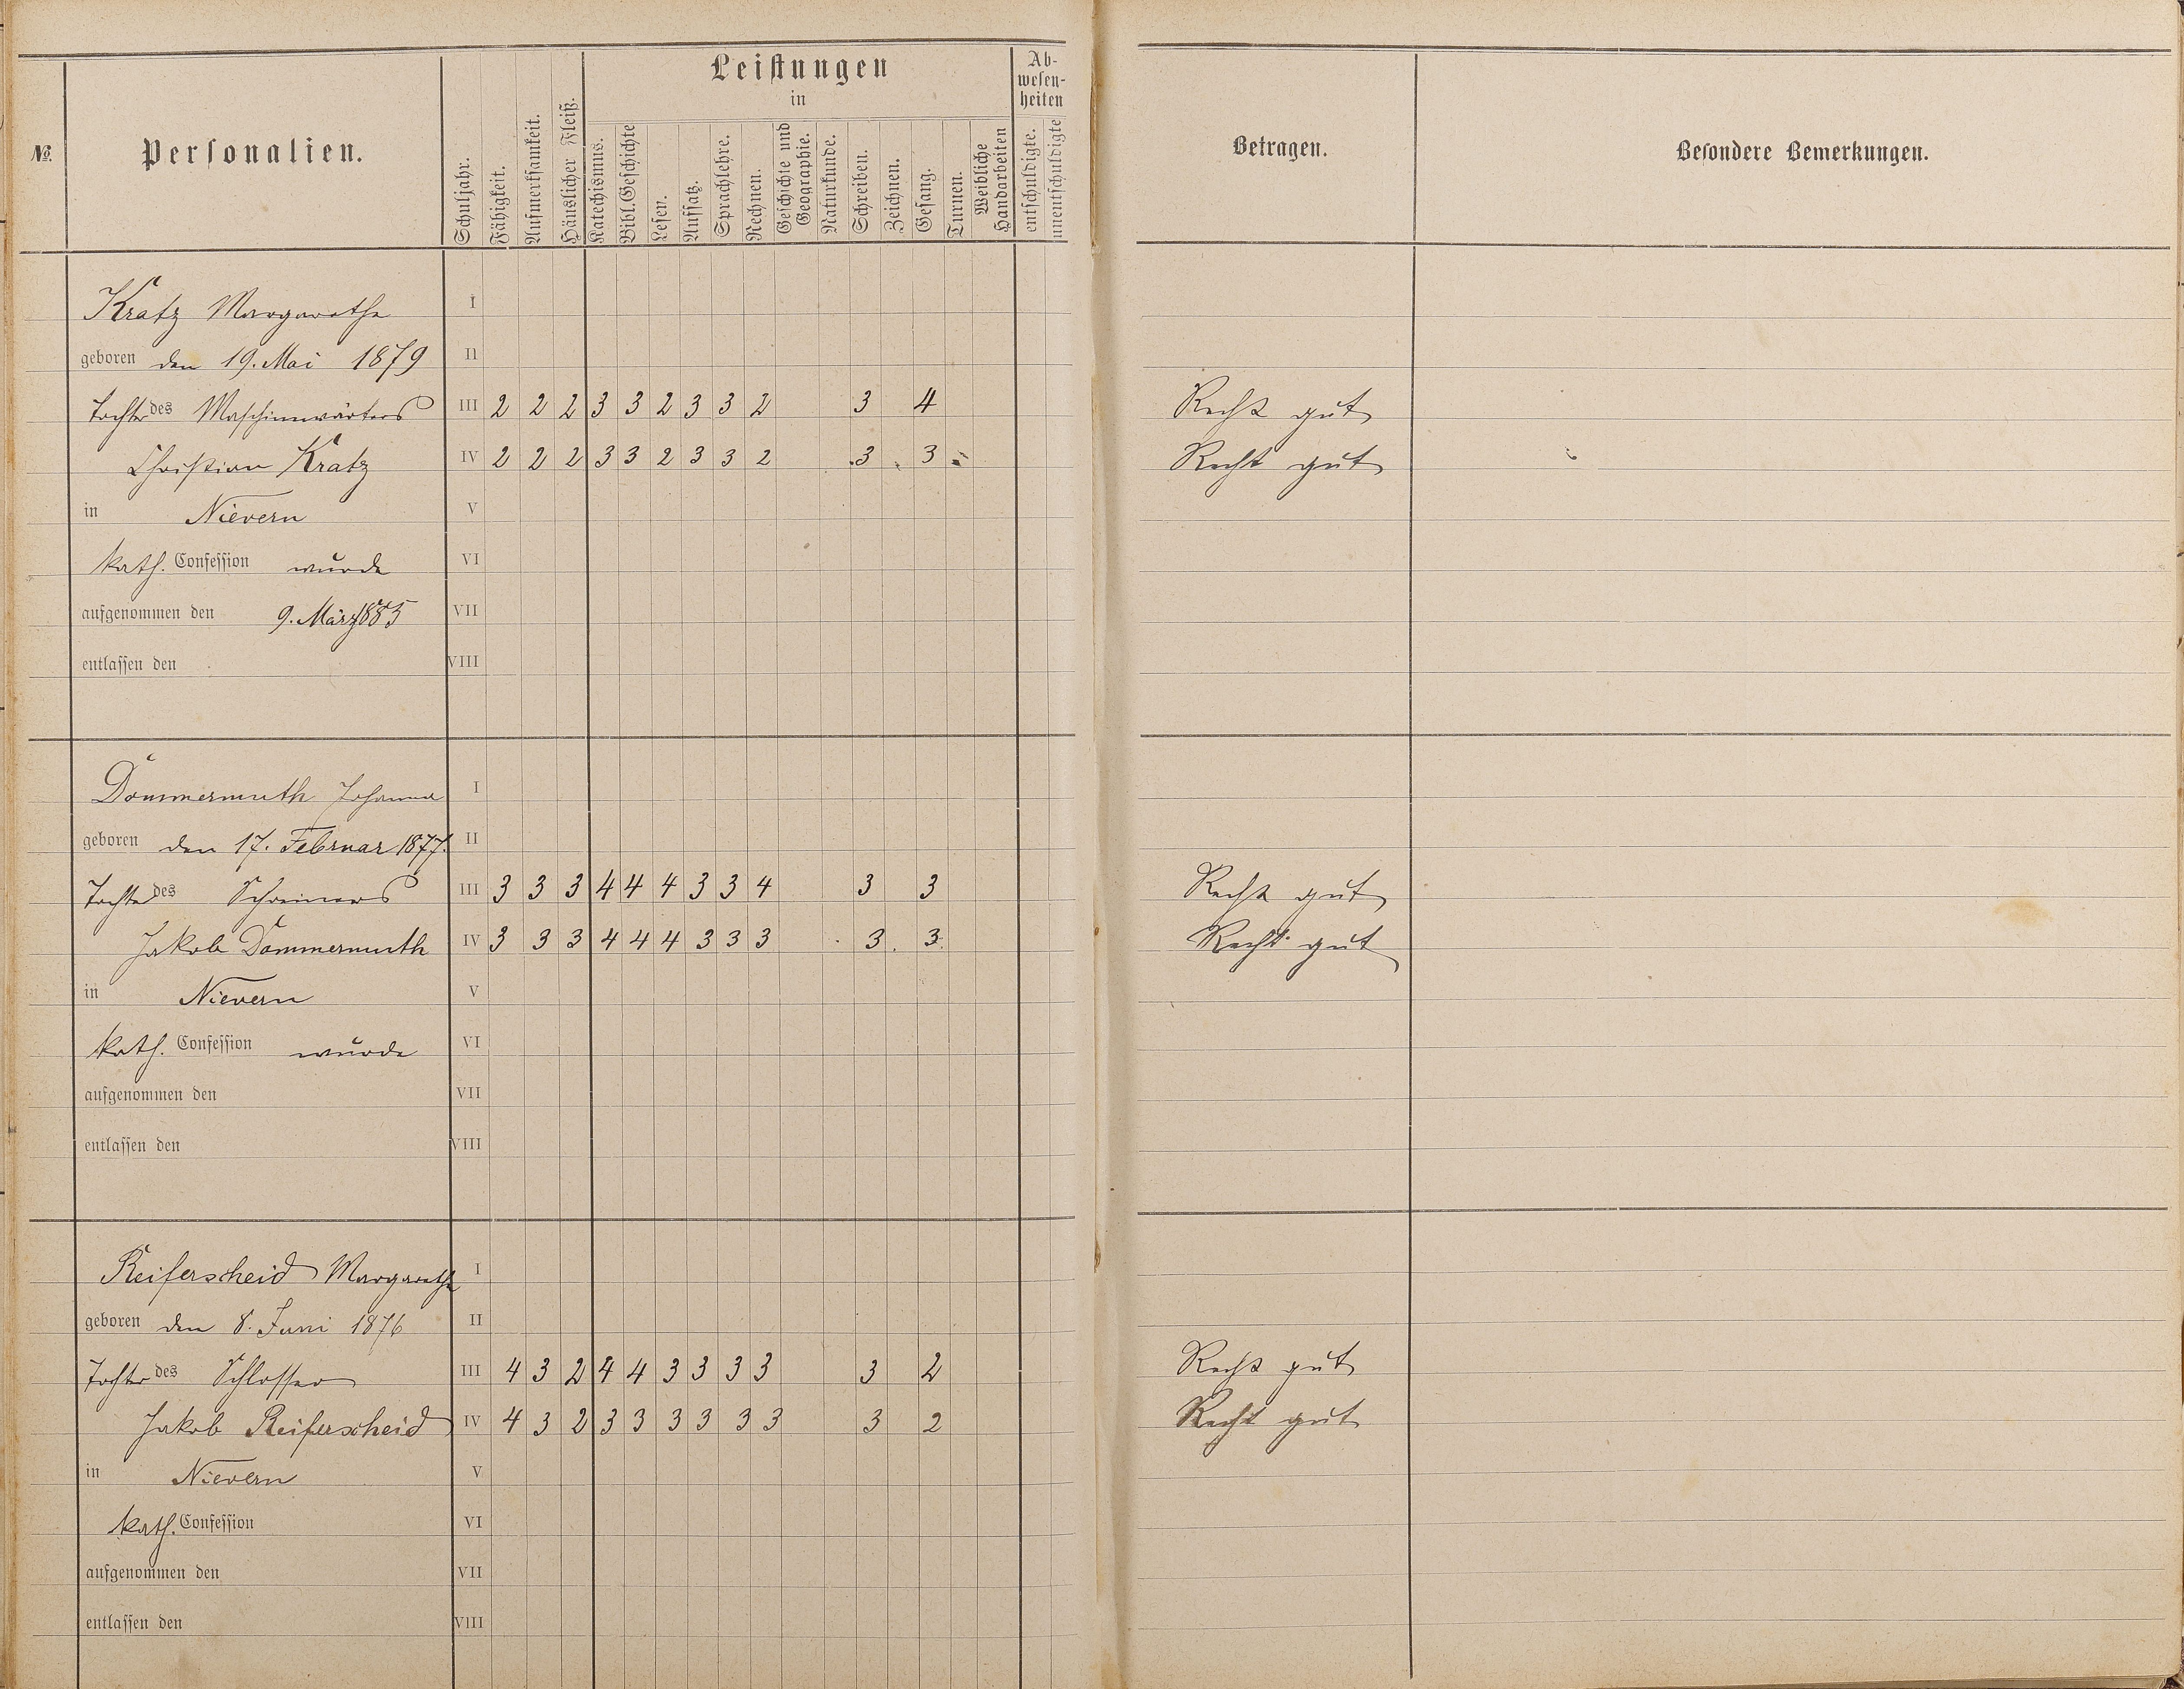 №.
Personalien.
Schuljahr.
Fähigkeit.
Aufmerksamkeit.
Häuslicher Fleiß.
Leistungen
in
Katechismus.
Bibl. Geschichte
Lesen.
Aufsatz.
Sprachlehre.
Rechnen.
Geschichte und
Geographie.
Naturkunde.
Schreiben.
Zeichnen.
Gesang.
Turnen.
Weibliche
Handarbeiten
Ab-
wesen-
heiten
entschuldigte.
unentschuldigte
Betragen.
Besondere Bemerkungen.
Kratz Margarethe I
geboren den 19. Mai 1879 II
Tochter des Maschinenwärters III 2 2 2 3 3 2 3 3 2 3 4 Recht gut
Christian Kratz IV 2 2 2 3 3 2 3 3 2 3 3 Recht gut
in Nievern V
kath. Confession wurde VI
aufgenommen den 9. März 1885 VII
entlassen den VIII
Dommermuth Johanna I
geboren den 17. Februar 1877. II
Tochter des Schreiners III 3 3 3 4 4 4 3 3 4 3 3 Recht gut
Jakob Dommermuth IV 3 3 3 4 4 4 3 3 3 3 3 Recht gut
in Nievern V
kath. Confession wurde VI
aufgenommen den VII
entlassen den VIII
Reiferscheid Margarethe I
geboren den 8. Juni 1876 II
Tochter des Schlosser III 4 3 2 4 4 3 3 3 3 3 2 Recht gut
Jakob Reiferscheid IV 4 3 2 3 3 3 3 3 3 3 2 Recht gut
in Nievern V
kath. Confession VI
aufgenommen den VII
entlassen den VIII